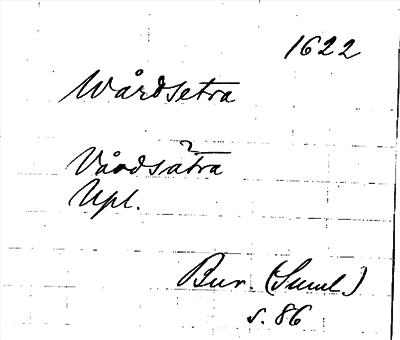 1622
Wårdsetra
?
Vårdsätra
Upl.
Bur. (Suml.)
s. 86